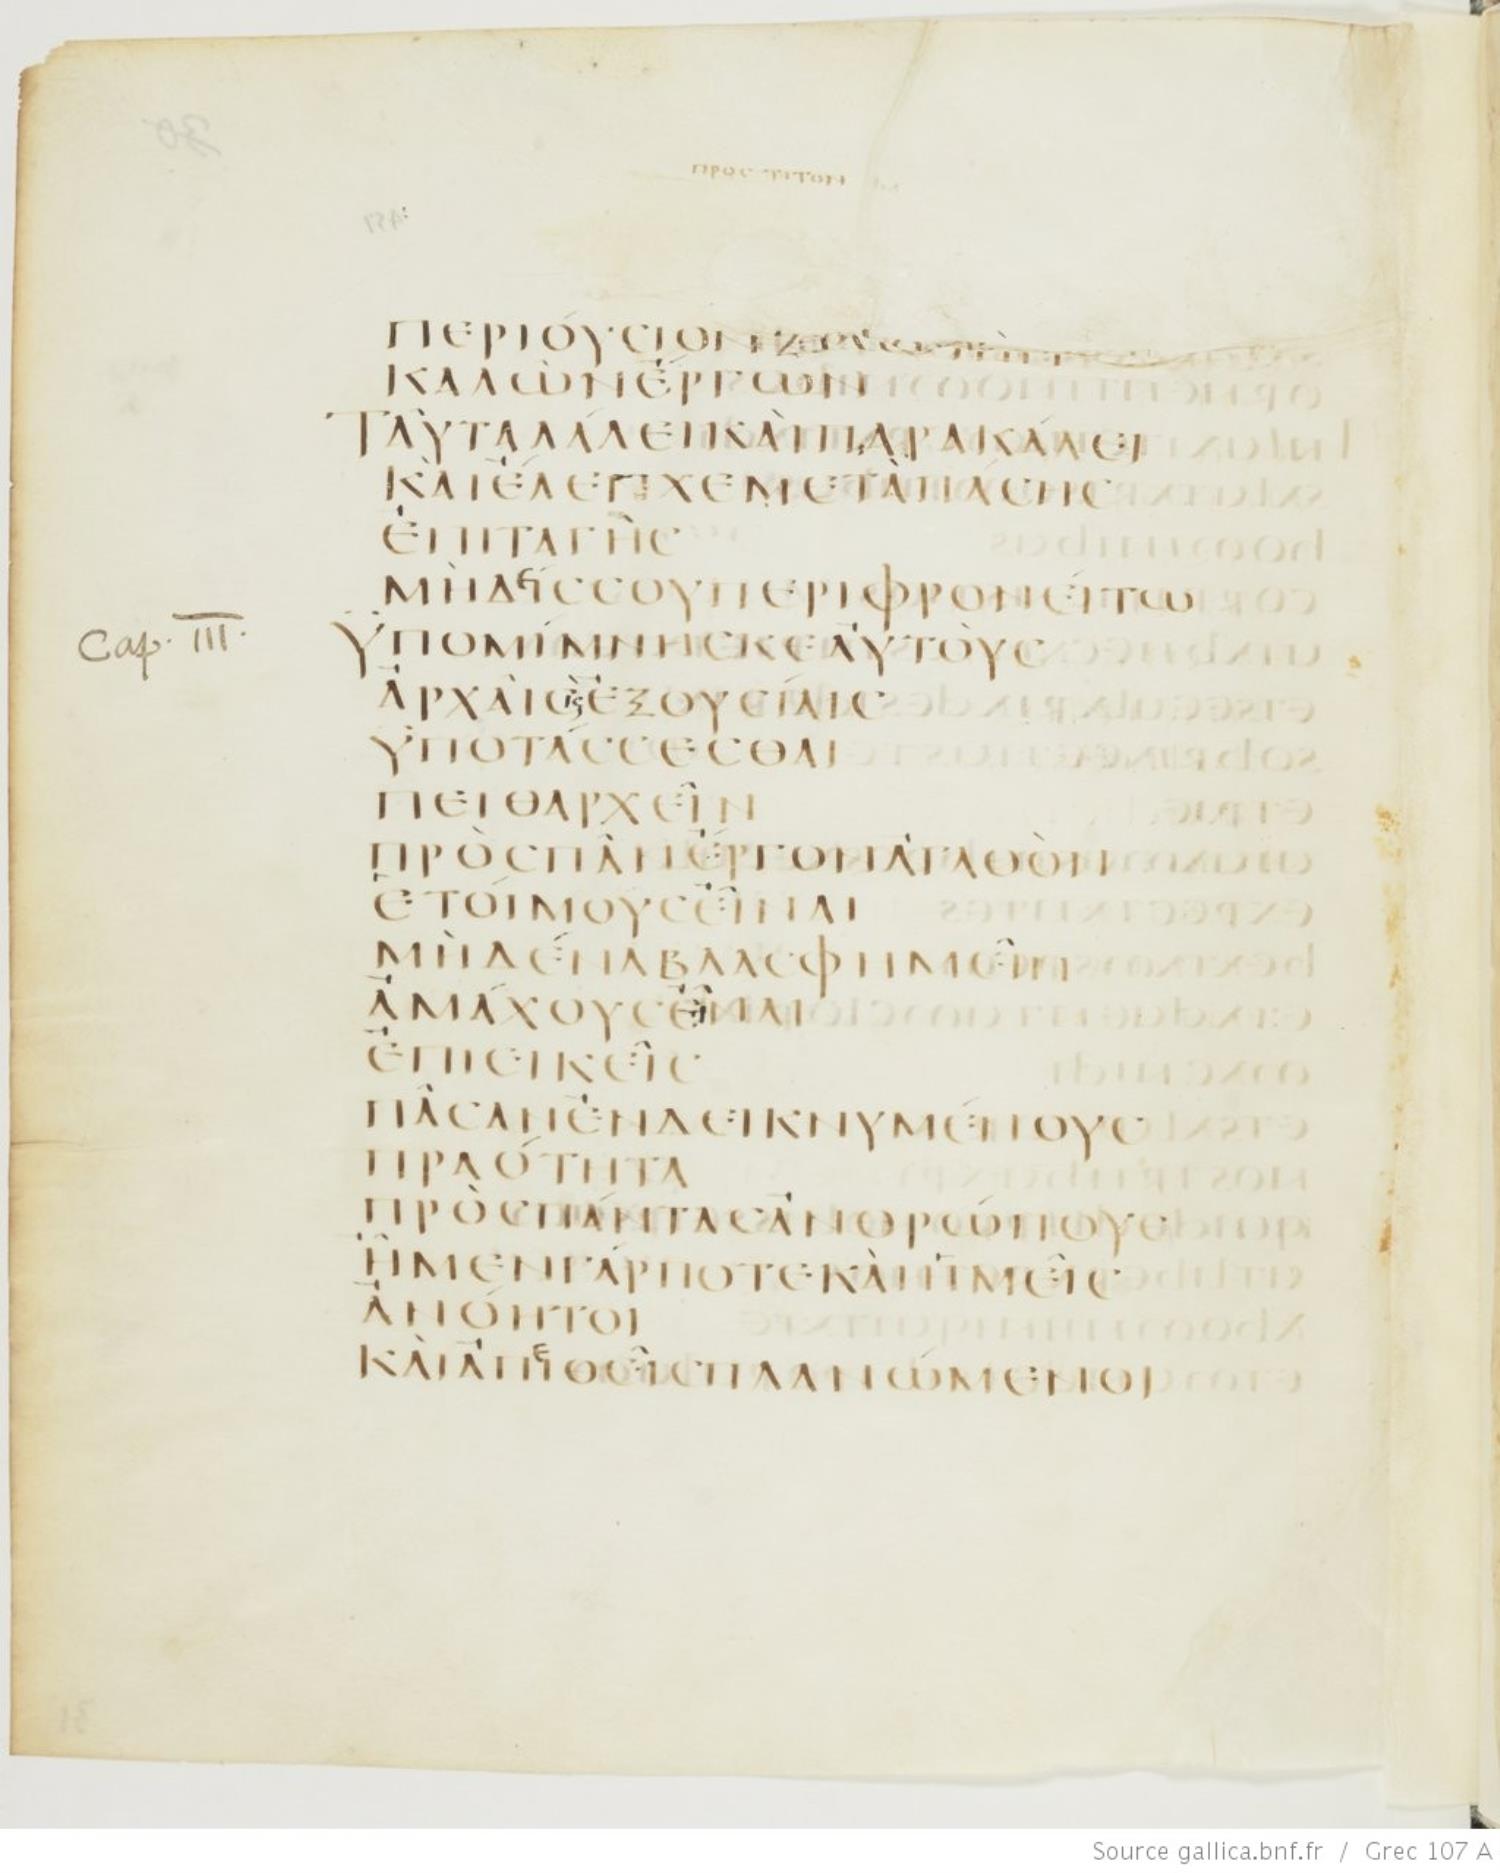 ΠΡΟΣ ΤΙΤΟΝ
ΠΕΡΙΟΎΣΙΟΝΖΗΛΩΤῊΝ
ΚΑΛῶΝἜΡΓΩΝ
ΤΑΥ͂ΤΑΛΆΛΕΙΚΑῚΠΑΡΑΚΆΛΕΙ
ΚΑῚἜΛΕΓΧΕΜΕΤᾺΠΆΣΗΣ
ἘΠΙΤΑΓΗ͂Σ
ΜΗΔΕΊΣΣΟΥΠΕΡΙΦΡΟΝΕΊΤΩ
Cap. III. ὙΠΟΜΊΜΝΗΣΚΕΑΥ̓ΤΟῪΣ
ἈΡΧΑῖΣϗἘΞΟΥΣΊΑΙΣ
ὙΠΟΤΆΣΣΕΣΘΑΙ
ΠΕΙΘΑΡΧΕΙ͂Ν
ΠΡῸΣΠΑ͂ΝἜΡΓΟΝἈΓΑΘῸΝ
ἙΤΟΊΜΟΥΣΕἾΝΑΙ
ΜΗΔΈΝΑΒΛΑΣΦΗΜΕΙ͂Ν
ἈΜΆΧΟΥΣΕἾΝΑΙ
ἘΠΙΕΙΚΕΙ͂Σ
ΠΑ͂ΣΑΝἘΝΔΕΙΚΝΥΜΈΝΟΥΣ
ΠΡΑΌΤΗΤΑ
ΠΡῸΣΠΆΝΤΑΣἈΝΘΡΏΠΟΥΣ
ἮΜΕΝΓΆΡΠΟΤΕΚΑῚΗΜΕΙ͂Σ
ἈΝΌΗΤΟΙ
ΚΑῚἈΠΕΙΘΕΙ͂ΣΠΛΑΝΏΜΕΝΟΙ
Source gallica.bnf.fr / Grec 107 A